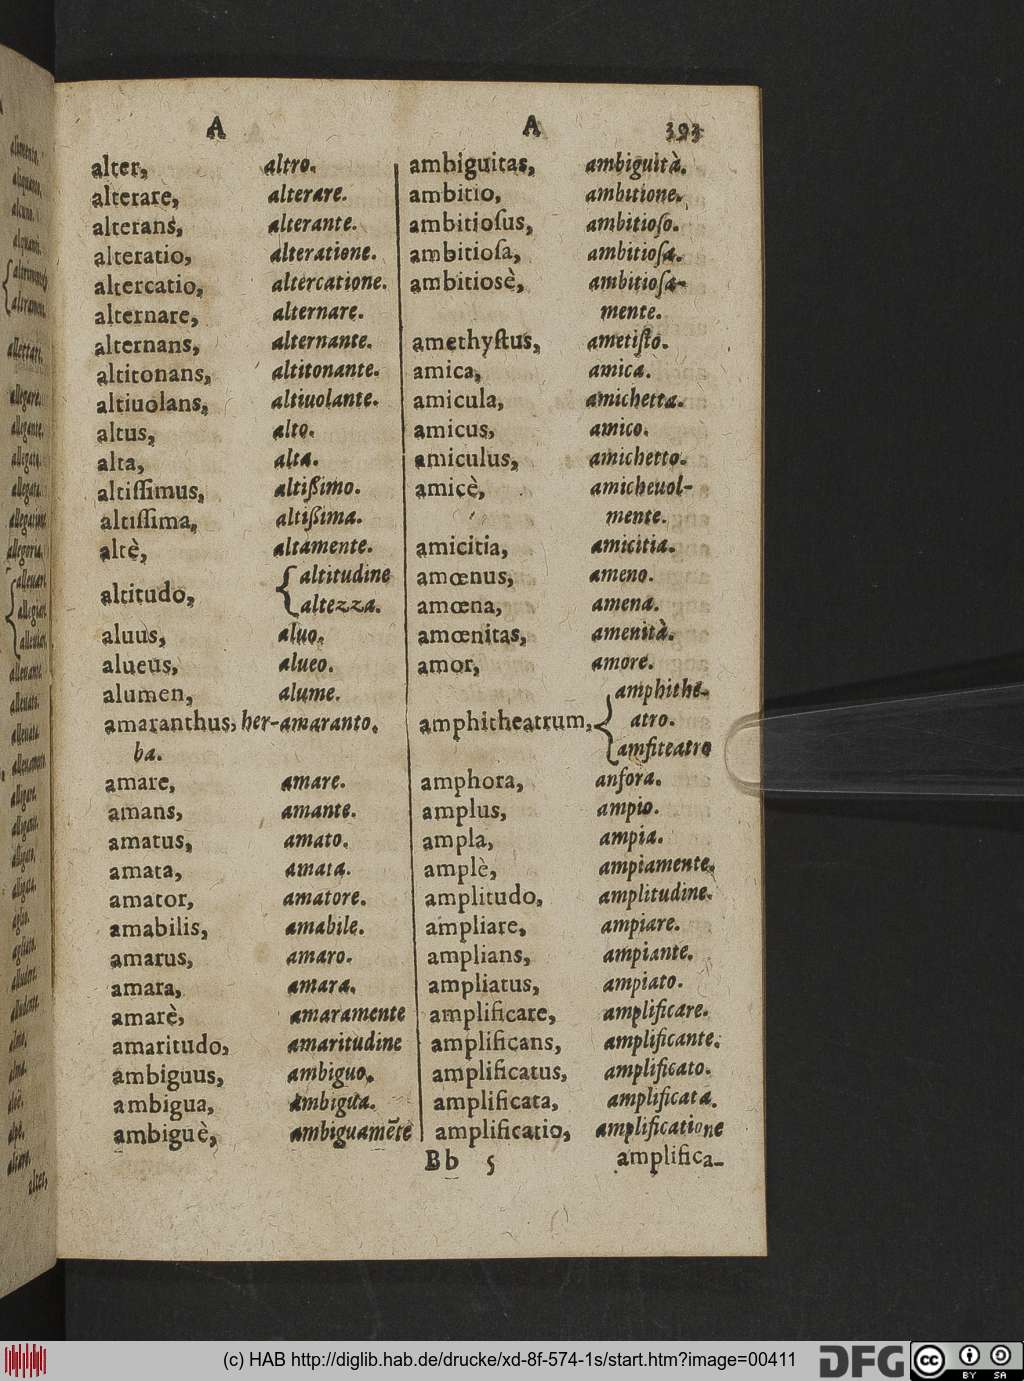 A A 393
alter, altro.
alterare, alterare.
alterans, alterante.
alteratio, alteratione.
altercatio, altercatione.
alternare, alternare.
alternans, alternante.
altitonans, altitonante.
altiuolans, altiuolante.
altus, alto.
alta, alta.
altiſſimus, altißimo.
altiſſima, altißima.
altè, altamente.
altitudo, { altitudine
altezza.
aluus, aluo.
alueus, alueo.
alumen, alume.
amaranthus, her- amaranto.
ba.
amare, amare.
amans, amante.
amatus, amato.
amata, amata.
amator, amatore.
amabilis, amabile.
amarus, amaro.
amara, amara.
amarè, amaramente
amaritudo, amaritudine
ambiguus, ambiguo.
ambigua, ambigua.
ambiguè, ambiguamẽte
ambiguitas, ambiguità.
ambitio, ambitione.
ambitioſus, ambitioſo.
ambitioſa, ambitioſa.
ambitiosè, ambitioſa-
mente.
amethyſtus, ametiſto.
amica, amica.
amicula, amichetta.
amicus, amico.
amiculus, amichetto.
amicè, amicheuol-
mente.
amicitia, amicitia.
amœnus, ameno.
amœna, amena.
amœnitas, amenità.
amor, amore.
amphithe-
amphitheatrum, { atro.
amfiteatro
amphora, anfora.
amplus, ampio.
ampla, ampia.
amplè, ampiamente.
amplitudo, amplitudine.
ampliare, ampiare.
amplians, ampiante.
ampliatus, ampiato.
amplificare, amplificare.
amplificans, amplificante.
amplificatus, amplificato.
amplificata, amplificata.
amplificatio, amplificatione
Bb 5 amplifica-
(c) HAB http://diglib.hab.de/drucke/xd-8f-574-1s/start.htm?image=00411
DFG cc BY SA